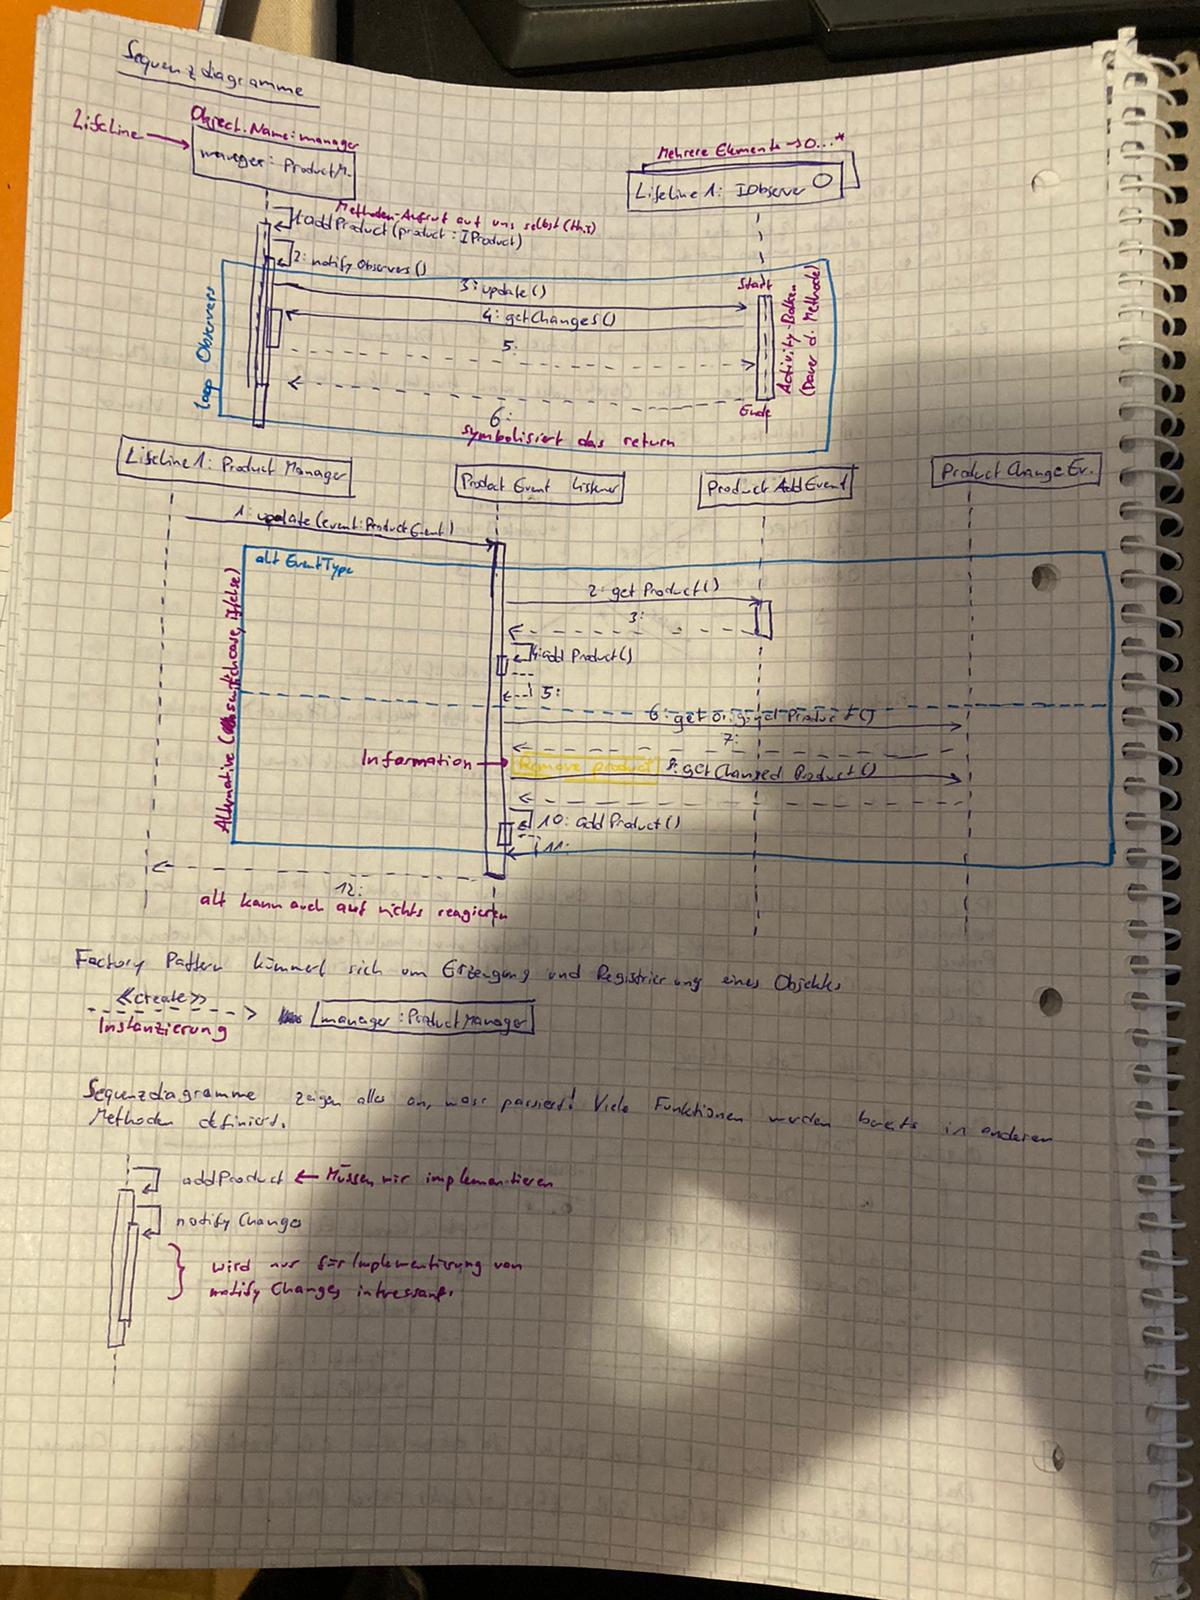 Sequenzdiagramme
LifeLine
Object.Name: manager
manager: ProductM.
Mehrere Elemente → 0...*
Lifeline 1: IObserver
Methoden-Aufruf auf uns selbst (this)
1: addProduct(product: IProduct)
2: notifyObservers()
loop Observers
3: update()
Start
4: getChanges()
5:
6:
Ende
Activity-Balken
(Dauer d. Methode)
symbolisiert das return
Lifeline 1: Product Manager
Product Event Listener
Product AddEvent
Product Change Ev.
1: update(event: ProductEvent)
alt EventType
Alternative (switchcase, if/else)
2: getProduct()
3:
4: add Product()
5:
6: get original Product()
7:
Information
Remove product
8: getChanged Product()
10: addProduct()
11:
12:
alt kann auch auf nichts reagieren
Factory Pattern kümmert sich um Erzeugung und Registrierung eines Objektes
≪create≫
Instanzierung
manager: ProductManager
Sequenzdiagramme zeigen alles an, was passiert! Viele Funktionen wurden bereits in anderen
Methoden definiert.
addProduct ← Müssen wir implementieren
notify Changes
wird nur für Implementierung von
notify Changes intressant.